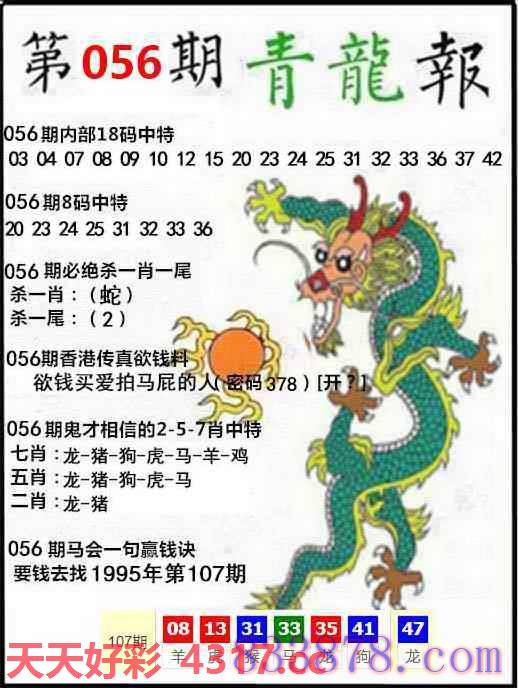 第056期青龍報
056期内部18码中特
03 04 07 08 09 10 12 15 20 23 24 25 31 32 33 36 37 42
056期8码中特
20 23 24 25 31 32 33 36
056 期必绝杀一肖一尾
杀一肖：（蛇）
杀一尾：（2）
056期香港传真欲钱料
欲钱买爱拍马屁的人(密码378)[开？]
056期鬼才相信的2-5-7肖中特
七肖：龙-猪-狗-虎-马-羊-鸡
五肖：龙-猪-狗-虎-马
二肖：龙-猪
056 期马会一句赢钱诀
要钱去找1995年第107期
107期 08 13 31 33 35 41 47
羊 虎 猴 马 龙 狗 龙
天天好彩 4317.cc